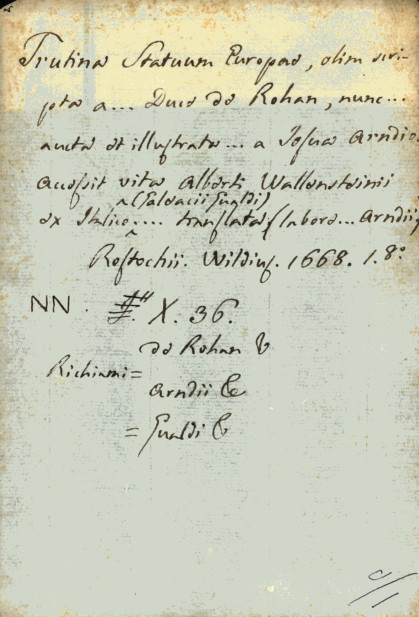 Trutina Statuum Europae, olim scri-
pta a... Duce de Rohan, nunc...
aucta et illustrata... a Josua Arndio.
Accessit vita Alberti Wallensteinii
(Galeacii Gualdi)
ex Italico.... translata (labore... Arndii)
Rostochii. Wildius. 1668. 1. 8°
NN. X. 36.
de Rohan
Richiami =
Arndii
= Gualdi